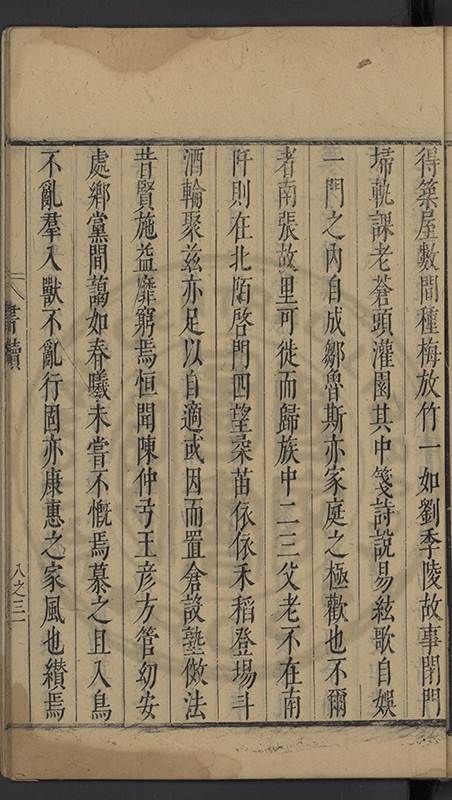 得築屋數間種梅放竹一如劉季陵故事閉門
埽軌課老蒼頭灌園其中箋詩說易絃歌自娛
一門之內自成鄒魯斯亦家庭之極歡也不爾
者南張故里可徙而歸族中二三父老不在南
阡則在北陌啓門四望桑苗依依禾稻登場斗
酒輪聚兹亦足以自適或因而置倉設塾倣法
昔賢施益靡窮焉恒聞陳仲弓王彥方管幼安
處鄉黨間藹如春曦未嘗不慨焉慕之且入鳥
不亂羣入獸不亂行固亦康惠之家風也纘焉
書牘
八之三